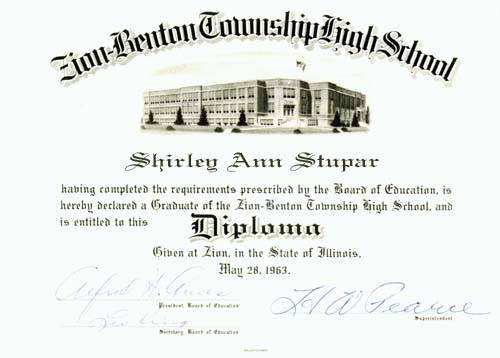 Zion-Benton Township High School
Shirley Ann Stupar
having completed the requirements prescribed by the Board of Education, is
hereby declared a Graduate of the Zion-Benton Township High School, and
is entitled to this Diploma
Given at Zion, in the State of Illinois,
May 28, 1963.
Alfred H.
President, Board of Education
H W Pearce
Superintendent
Secretary, Board of Education